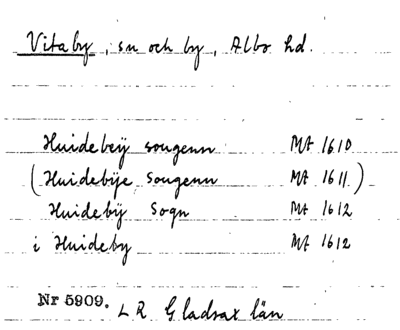 Vitaby, sn och by, Albo hd.
Huidebeÿ sougenn MA 1610
(Huidebÿe sougenn MA 1611)
Huidebÿ Sogn MA 1612
i Huideby MA 1612
Nr 5909. L R. Gladsax län